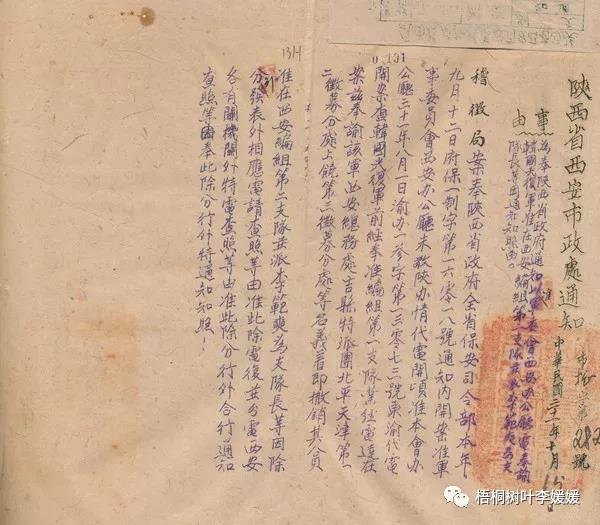 陝西省西安市政處通知
市 字第282號
中華民國三十一年十月 日
事由
為奉陝西省政府通知以軍委會西安辦公廳電奉諭
韓國光復軍准在西安編組第二支隊並派李範奭為支
隊長等因通知知照由
稽徵局案奉陝西省政府全省保安司令部本年
九月十二日府保一制字第一六零一八號通知內開案准軍
事委員會西安辦公廳未敬陝办情代電開頃准本會办
公廳三十一年八月一日渝办一參字第一三零七三號東渝代電
開案查韓國光復軍前經奉准編組第一支隊業經電達在
案茲奉諭該軍西安總務處吉縣特派團北平天津第一
二徵募分處上饒第三徵募分處等名義着即撤銷其人員
准在西安編組第二支隊並派李範奭為支隊長等因除
分發表外相應電請查照等由准此除電復並分電西安
各有關機關外特電查照等由准此除分行外合行通知
查照等因奉此除分行外特通知知照！
0 131
1314
梧桐树叶李媛媛